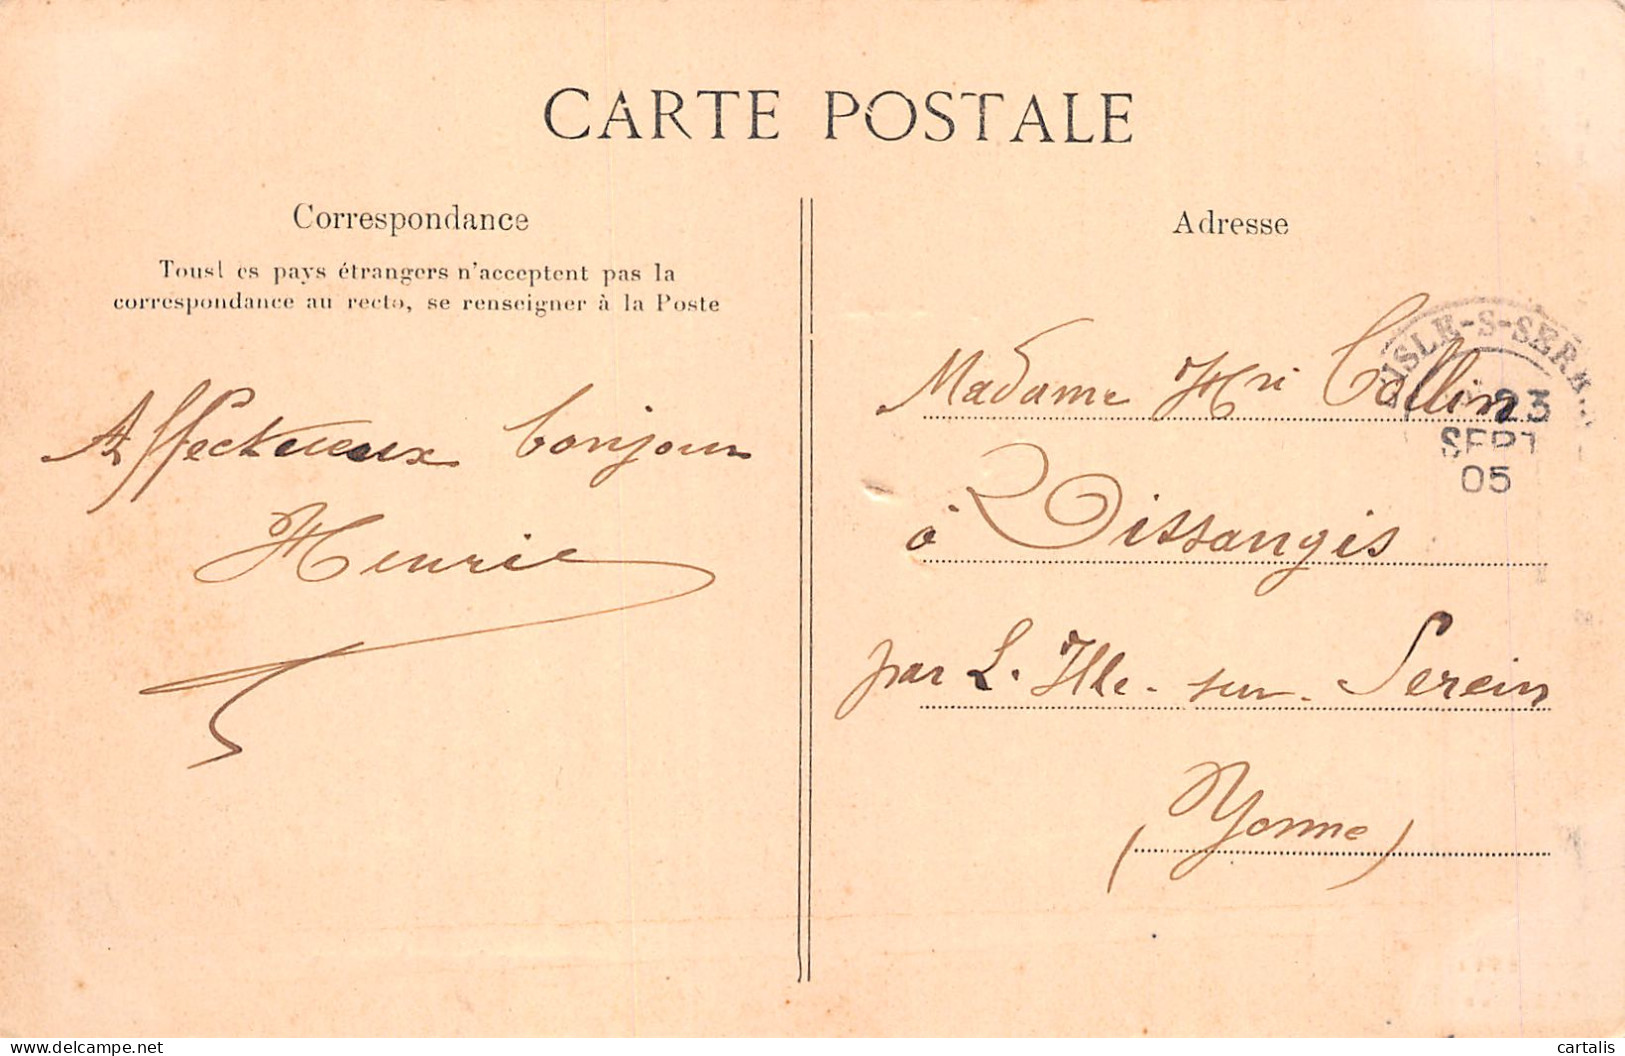 CARTE POSTALE
Correspondance
Tousl es pays étrangers n'acceptent pas la
correspondance au recto, se renseigner à la Poste
Affectueux bonjour
Henrie
Adresse
Madame Hri Collin
à Dissangis
par L. Isle-sur-Serein
(Yonne)
L'ISLE-S-SEREIN
23
SEPT
05
delcampe.net
cartalis